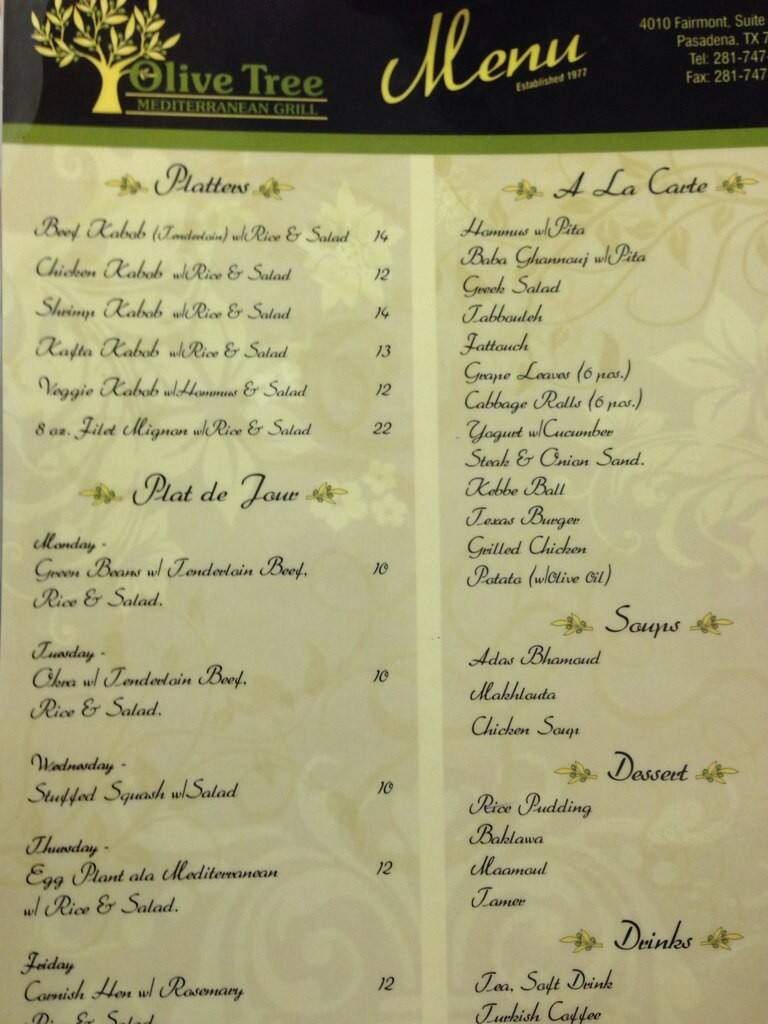 Olive Tree
MEDITERRANEAN GRILL
Menu
Established 1977
4010 Fairmont, Suite
Pasadena, TX 7
Tel: 281-747-
Fax: 281-747
Platters
Beef Kabob (Tenderloin) w/Rice & Salad 14
Chicken Kabob w/Rice & Salad 12
Shrimp Kabob w/Rice & Salad 14
Kafta Kabob w/Rice & Salad 13
Veggie Kabob w/Hommus & Salad 12
8 oz. Filet Mignon w/Rice & Salad 22
Plat de Jour
Monday -
Green Beans w/ Tenderloin Beef, 10
Rice & Salad.
Tuesday -
Okra w/ Tenderloin Beef, 10
Rice & Salad.
Wednesday -
Stuffed Squash w/Salad 10
Thursday -
Egg Plant ala Mediterranean 12
w/ Rice & Salad.
Friday
Cornish Hen w/ Rosemary 12
Rice & Salad
A La Carte
Hommus w/Pita
Baba Ghannouj w/Pita
Greek Salad
Tabbouleh
Fattouch
Grape Leaves (6 pcs.)
Cabbage Rolls (6 pcs.)
Yogurt w/Cucumber
Steak & Onion Sand.
Kebbe Ball
Texas Burger
Grilled Chicken
Potato (w/Olive Oil)
Soups
Adas Bhamoud
Makhlouta
Chicken Soup
Dessert
Rice Pudding
Baklawa
Maamoul
Tamer
Drinks
Tea, Soft Drink
Turkish Coffee